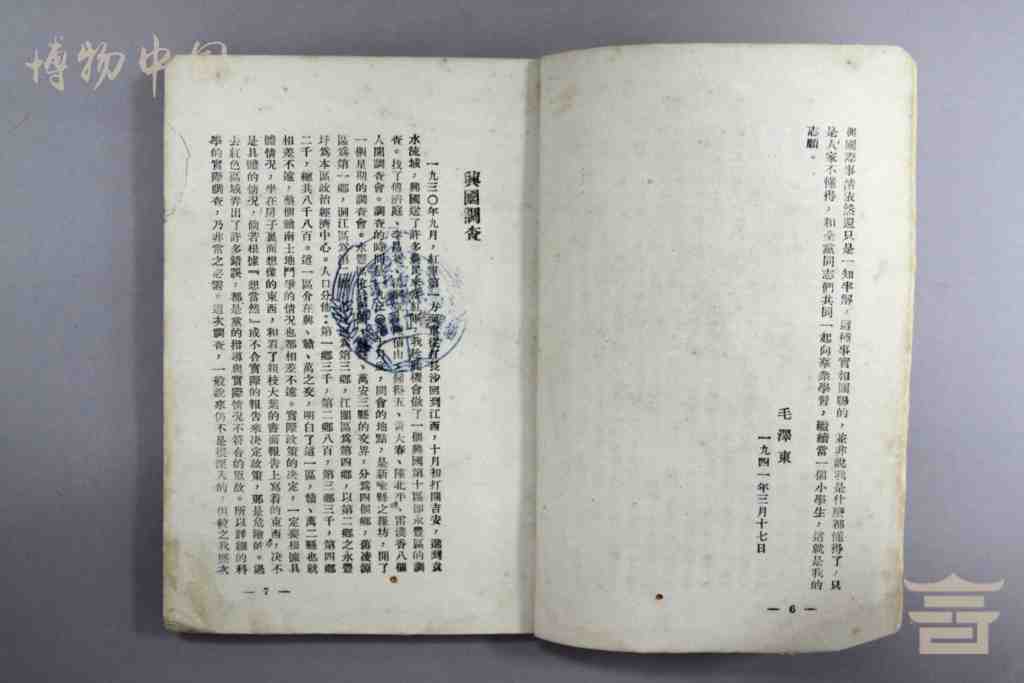 博物中国
與國際事情依然還只是一知半解,這種事實相關聯的,並非說我是什麼都懂得了,只
是人家不懂得,和全黨同志們共同一起向羣衆學習,繼續當一個小學生,這就是我的
志願。
毛澤東
一九四一年三月十七日
— 6 —
興國調查
一九三〇年九月,紅軍第一方面軍從打長沙回到江西,十月初打開吉安,進到袁
水流域,興國送了許多農民來當紅軍,我趁此機會做了一個興國第十區即永豐區的調
查。找了傅濟庭、李昌英、鍾得五、黃大春、陳北平、雷漢香八個
人開調查會。調查的時間,開會的地點,是新喻縣之羅坊,開了
一個星期的調查會。永豐區位於興、萬安三縣的交界,分爲四個鄉,舊凌源
區爲第一鄉,洞江區爲第二鄉,爲第三鄉,江團區爲第四鄉,以第二鄉之永豐
圩爲本區政治經濟中心。人口分佈:第一鄉三千,第二鄉八百,第三鄉三千,第四鄉
二千,總共八千八百。這一區介在興、贛、萬之交,明白了這一區,贛、萬二縣也就
相差不遠,整個贛南土地鬥爭的情況也都相差不遠。實際政策的決定,一定要根據具
體情況,坐在房子裏面想像的東西,和看了粗枝大葉的書面報告上寫着的東西,決不
是具體的情況,倘若根據「想當然」或不合實際的報告來決定政策,那是危險的。過
去紅色區域弄出了許多錯誤,都是黨的指導與實際情況不符合的原故。所以詳細的科
學的實際調查,乃非常之必需。這次調查,一般說來仍不是很深入的,但較之我歷次
— 7 —